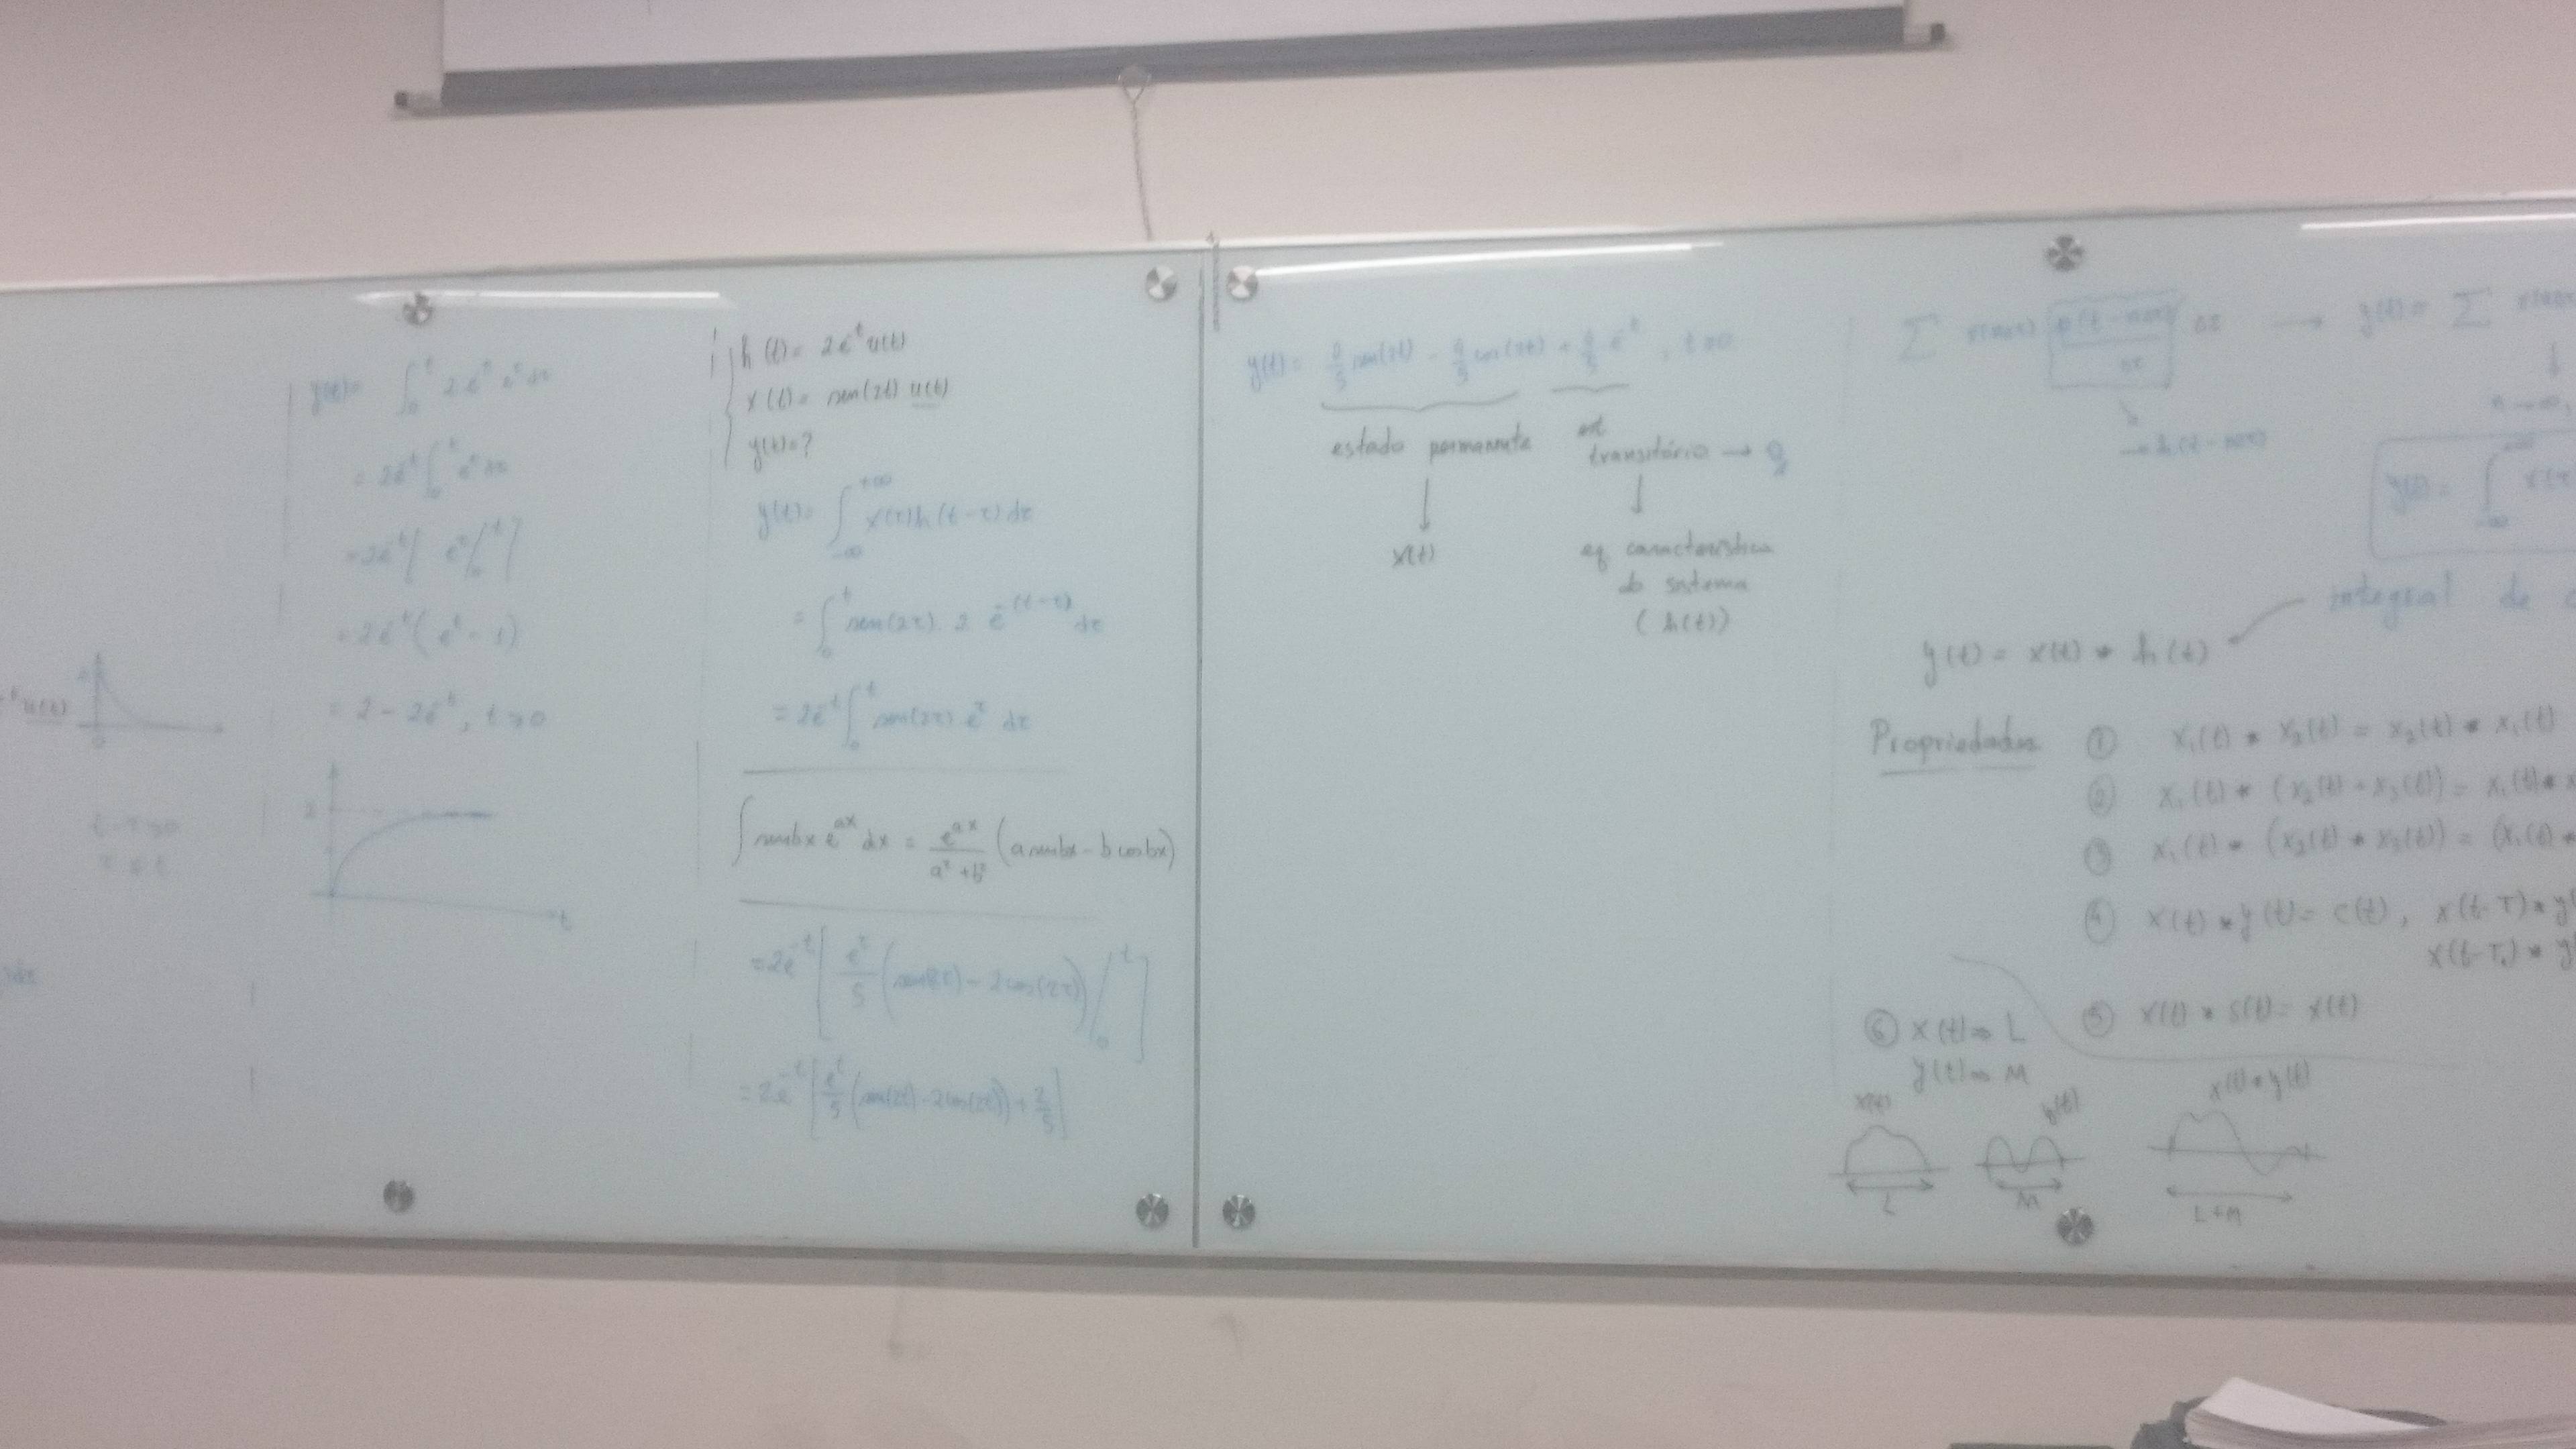 e^{-t} u(t)
2
0
t-τ>0
τ<t
y(t) = ∫_0^t 2e^{-t} e^τ dτ
= 2e^{-t} ∫_0^t e^τ dτ
= 2e^{-t} [ e^τ |_0^t ]
= 2e^{-t} ( e^t - 1)
= 2 - 2e^{-t}, t>0
2
t
h(t) = 2e^{-t} u(t)
x(t) = sen(2t) u(t)
y(t) = ?
y(t) = ∫_{-∞}^{+∞} x(τ) h(t-τ) dτ
= ∫_0^t sen(2τ). 2 e^{-(t-τ)} dτ
= 2e^{-t} ∫_0^t sen(2τ) e^τ dτ
∫ senbx e^{ax} dx = e^{ax}/(a²+b²) (a senbx - b cosbx)
= 2e^{-t} [ e^τ/5 (sen(2τ) - 2cos(2τ)) |_0^t ]
= 2e^{-t} [ e^t/5 (sen(2t) - 2cos(2t)) + 2/5 ]
y(t) = 2/5 sen(2t) - 4/5 cos(2t) + 4/5 e^{-t}, t>0
estado permanente
est transitório →
x(t)
eq característica
do sistema
(h(t))
Σ
→ y(t) = Σ
→ h(t-nΔτ)
n→∞
y(t) = ∫_{-∞}^{+∞} x(τ)
integral de
y(t) = x(t) * h(t)
Propriedades
① x₁(t) * x₂(t) = x₂(t) * x₁(t)
② x₁(t) * (x₂(t) + x₃(t)) = x₁(t) *
③ x₁(t) * (x₂(t) * x₃(t)) = (x₁(t) *
④ x(t) * y(t) = c(t), x(t-T) * y(
x(t-T₁) * y(
⑤ x(t) * δ(t) = x(t)
⑥ x(t) → L
y(t) → M
x(t)
y(t)
x(t) * y(t)
L
M
L+M